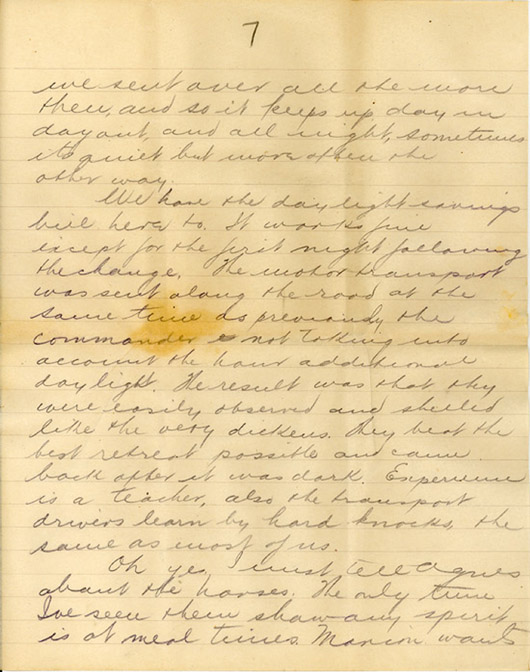 7
we sent over all the more
then, and so it keeps up, day in
day out, and all night, sometimes
its quiet but more often the
other way.
We have the day light savings
bill here to. It works fine
except for the first night following
the change. The motor transport
was sent along the road at the
same time as previously, the
commander not taking into
account the hour additional
daylight. The result was that they
were easily observed and shelled
like the very dickens. They beat the
best retreat possible and came
back after it was dark. Experience
is a teacher, also the transport
drivers learn by hard knocks, the
same as most of us.
Oh yes, I must tell Agnes
about the horses. The only time
I've seen them show any spirit
is at meal times. Marion wants